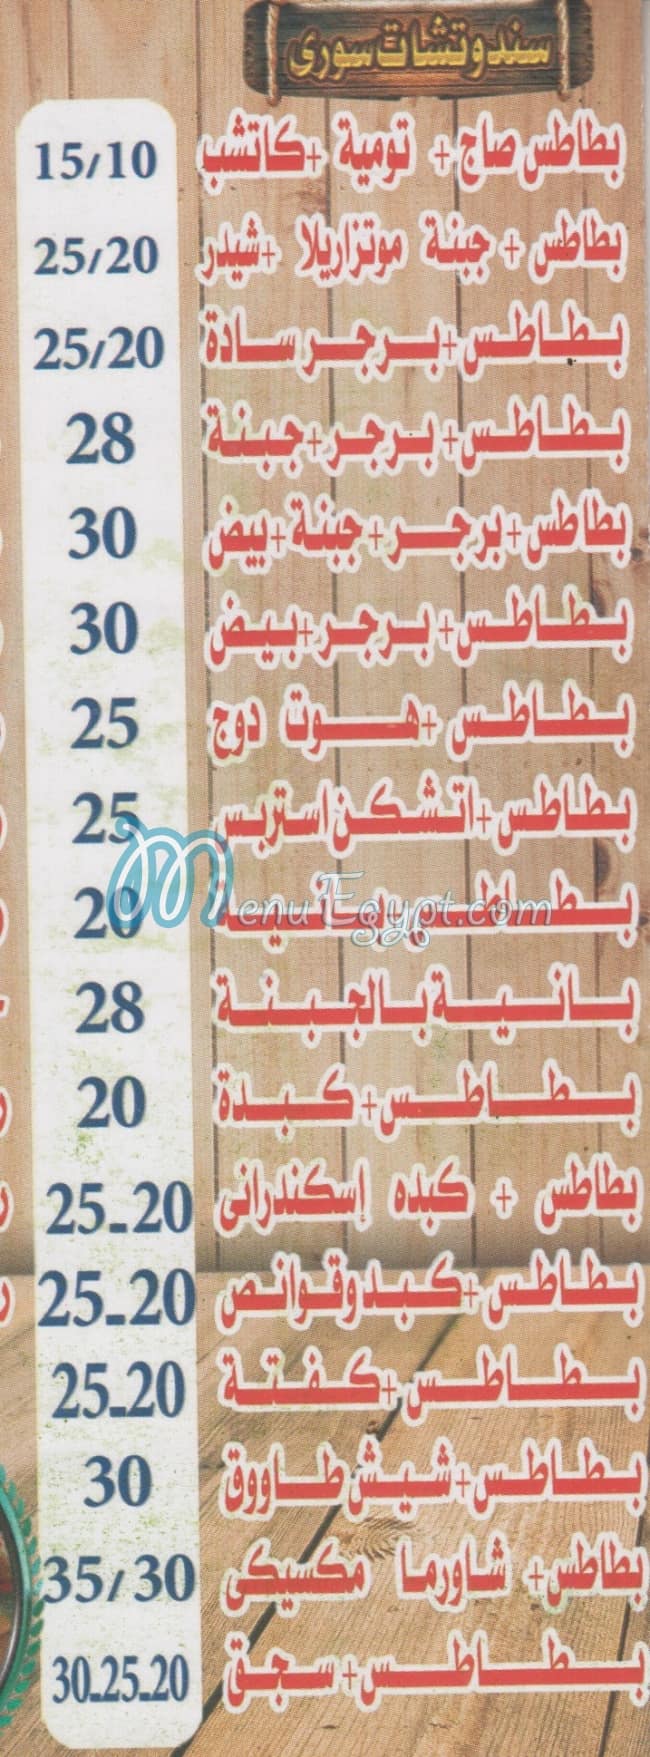 سندوتشات سورى
بطاطس صاج + تومية + كاتشب 15/10
بطاطس + جبنة موتزاريلا + شيدر 25/20
بطاطس + برجر سادة 25/20
بطاطس + برجر + جبنة 28
بطاطس + برجر + جبنة + بيض 30
بطاطس + برجر + بيض 30
بطاطس + هوت دوج 25
بطاطس + اتشكن استربس 25
بطاطس + بانية 20
MenuEgypt.com
بانية بالجبنة 28
بطاطس + كبدة 20
بطاطس + كبده إسكندرانى 25-20
بطاطس + كبد وقوانص 25-20
بطاطس + كفتة 25-20
بطاطس + شيش طاووق 30
بطاطس + شاورما مكسيكى 35/30
بطاطس + سجق 30-25-20